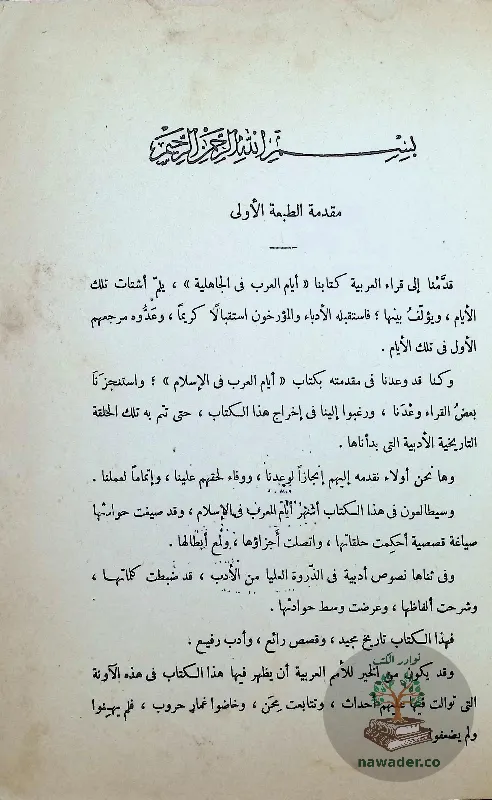 بسم الله الرحمن الرحيم
مقدمة الطبعة الأولى
قدَّمْنا إلى قراء العربية كتابنا « أيام العرب فى الجاهلية » ، يلمّ أشتات تلك
الأيام ، ويؤلّف بينها ؛ فاستقبله الأدباء والمؤرخون استقبالًا كريمًا ، وعَدُّوه مرجعهم
الأول فى تلك الأيام .
وكنا قد وعدنا فى مقدمته بكتاب « أيام العرب فى الإسلام » ؛ واستنجزَنَا
بعضُ القراء وعْدَنا ، ورغبوا إلينا فى إخراج هذا الكتاب ، حتى تتم به تلك الحلقة
التاريخية الأدبية التى بدأناها .
وها نحن أولاء نقدمه إليهم إنجازاً لوعدنا ، ووفاء لحقهم علينا ، وإتماماً لعملنا .
وسيطالعون فى هذا الكتاب أشهر أيام العرب فى الإسلام ، وقد صيغت حوادثها
صياغة قصصية أحكمت حلقاتها ، واتصلت أجزاؤها ، ولمع أبطالها .
وفى ثناها نصوص أدبية فى الذّروة العليا من الأدب ، قد ضبطت كلماتها ،
وشرحت ألفاظها ، وعرضت وسط حوادثها .
فهذا الكتاب تاريخ مجيد ، وقصص رائع ، وأدب رفيع .
وقد يكون من الخير للأمم العربية أن يظهر فيها هذا الكتاب فى هذه الآونة
التى توالت فيها عليهم أحداث ، وتتابعت مِحَن ، وخاضوا غمار حروب ، فلم يهِنُوا
ولم يضعفوا
نوادر الكتب
nawader.co